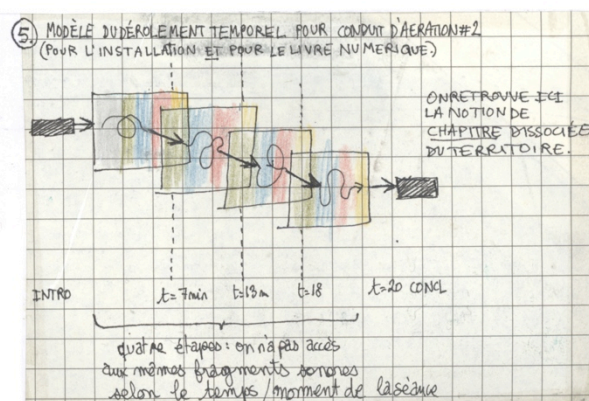 5. MODÈLE DU DÉROLEMENT TEMPOREL POUR CONDUIT D'AERATION#2
(POUR L'INSTALLATION ET POUR LE LIVRE NUMERIQUE.)
ON RETROUVE ICI
LA NOTION DE
CHAPITRE DISSOCIÉE
DU TERRITOIRE.
INTRO
t=7min
t=13m
t=18
t=20 CONCL
quatre étapes: on n'a pas accès
aux mêmes fragments sonores
selon le temps/moment de la séance